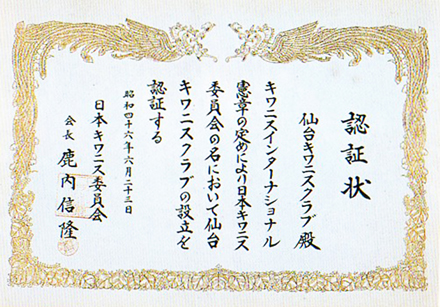 認証状
仙台キワニスクラブ殿
キワニスインターナショナル
憲章の定めにより日本キワニス
委員会の名において仙台
キワニスクラブの設立を
認証する
昭和四十六年六月二十三日
日本キワニス委員会
会長 鹿内信隆